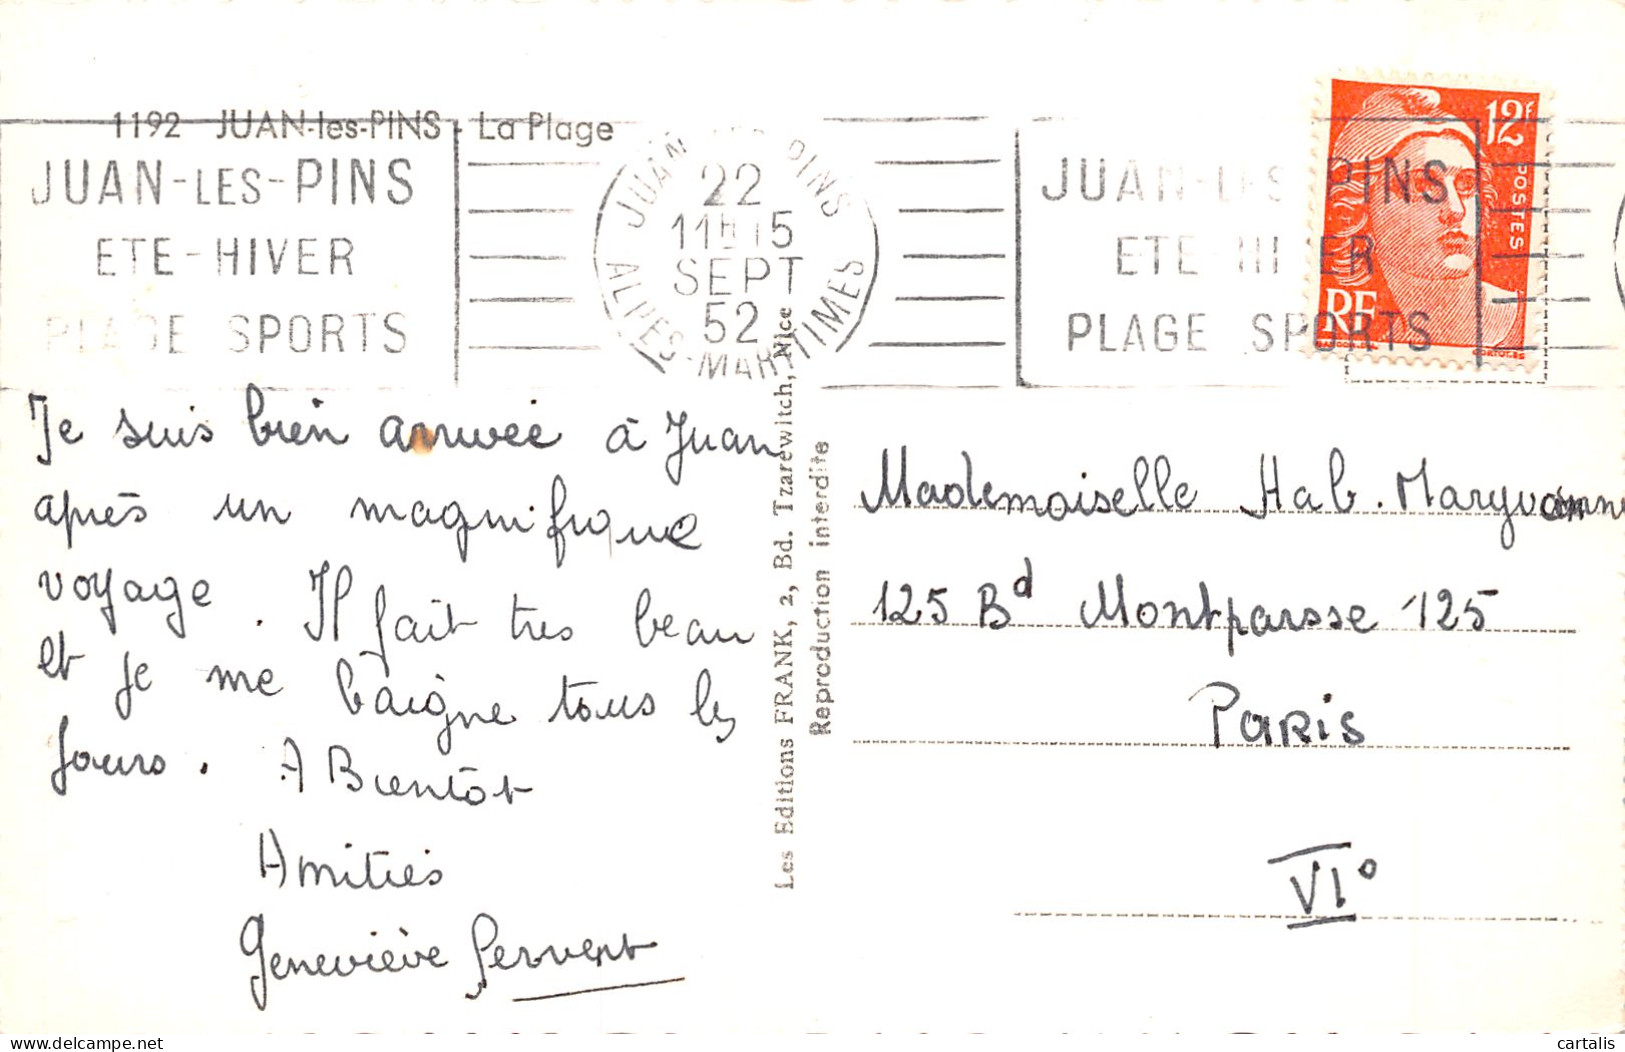 1192 JUAN-les-PINS - La Plage
JUAN-LES-PINS
ETE-HIVER
PLAGE SPORTS
JUAN PINS
22
11H15
SEPT
52
ALPES-MARITIMES
JUAN-LES PINS
ETE HIVER
PLAGE SPORTS
12F
POSTES
RF
GANDON.DEL.
CORTOT.SC
Je suis bien arrivée à Juan
après un magnifique
voyage. Il fait très beau
et je me baigne tous les
jours. A Bientôt
Amitiés
Geneviève
Les Editions FRANK, 2, Bd. Tzaréwitch, Nice
Reproduction interdite
Mademoiselle Hab. Maryvonne
125 Bd Montparsse 125
PARIS
VI°
cartalis